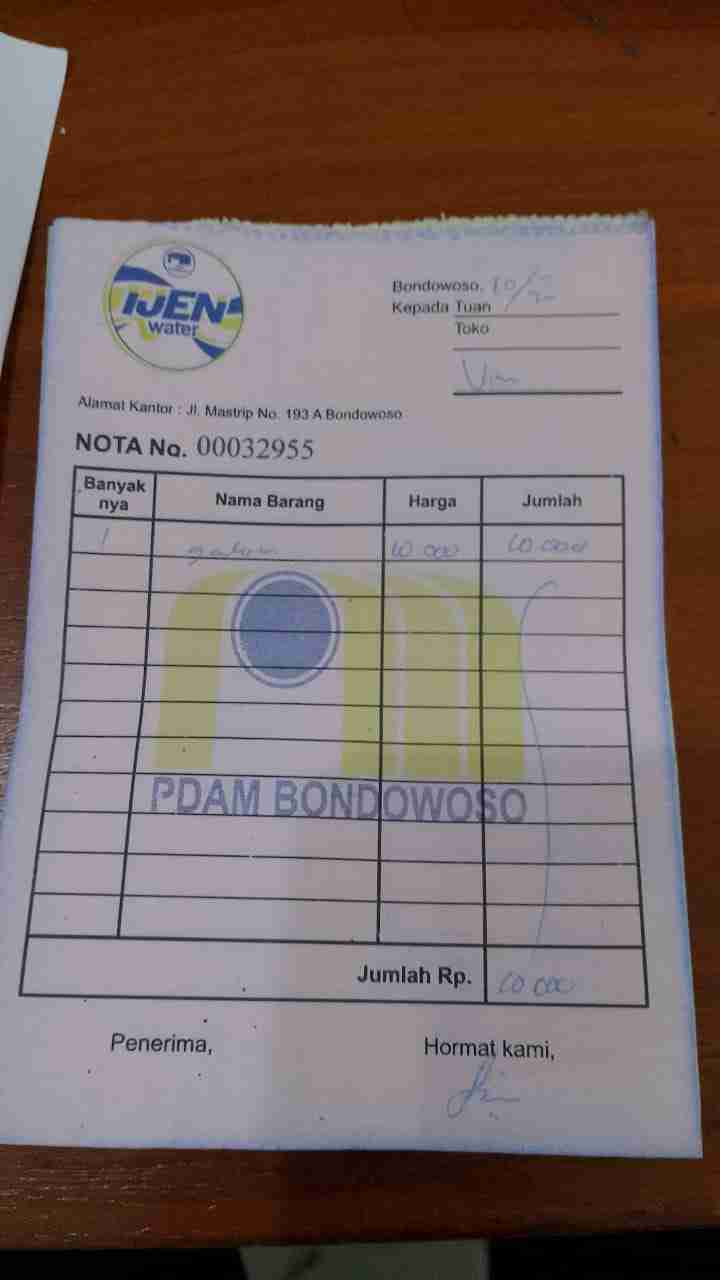 IJEN
water
Bondowoso,
Kepada Tuan
Toko
Alamat Kantor : Jl. Mastrip No. 193 A Bondowoso
NOTA No. 00032955
Banyak nya Nama Barang Harga Jumlah
1 galon 10 000 10 000
PDAM BONDOWOSO
Jumlah Rp. 10 000
Penerima, Hormat kami,